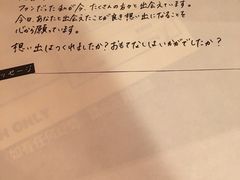 ファンだった私が今、たくさんの方々と出会えています。
今日、あなたと出会えたことが良き想い出になることを
心から願っています。
想い出はつくれましたか？おもてなしはいかがでしたか？
ッセージ